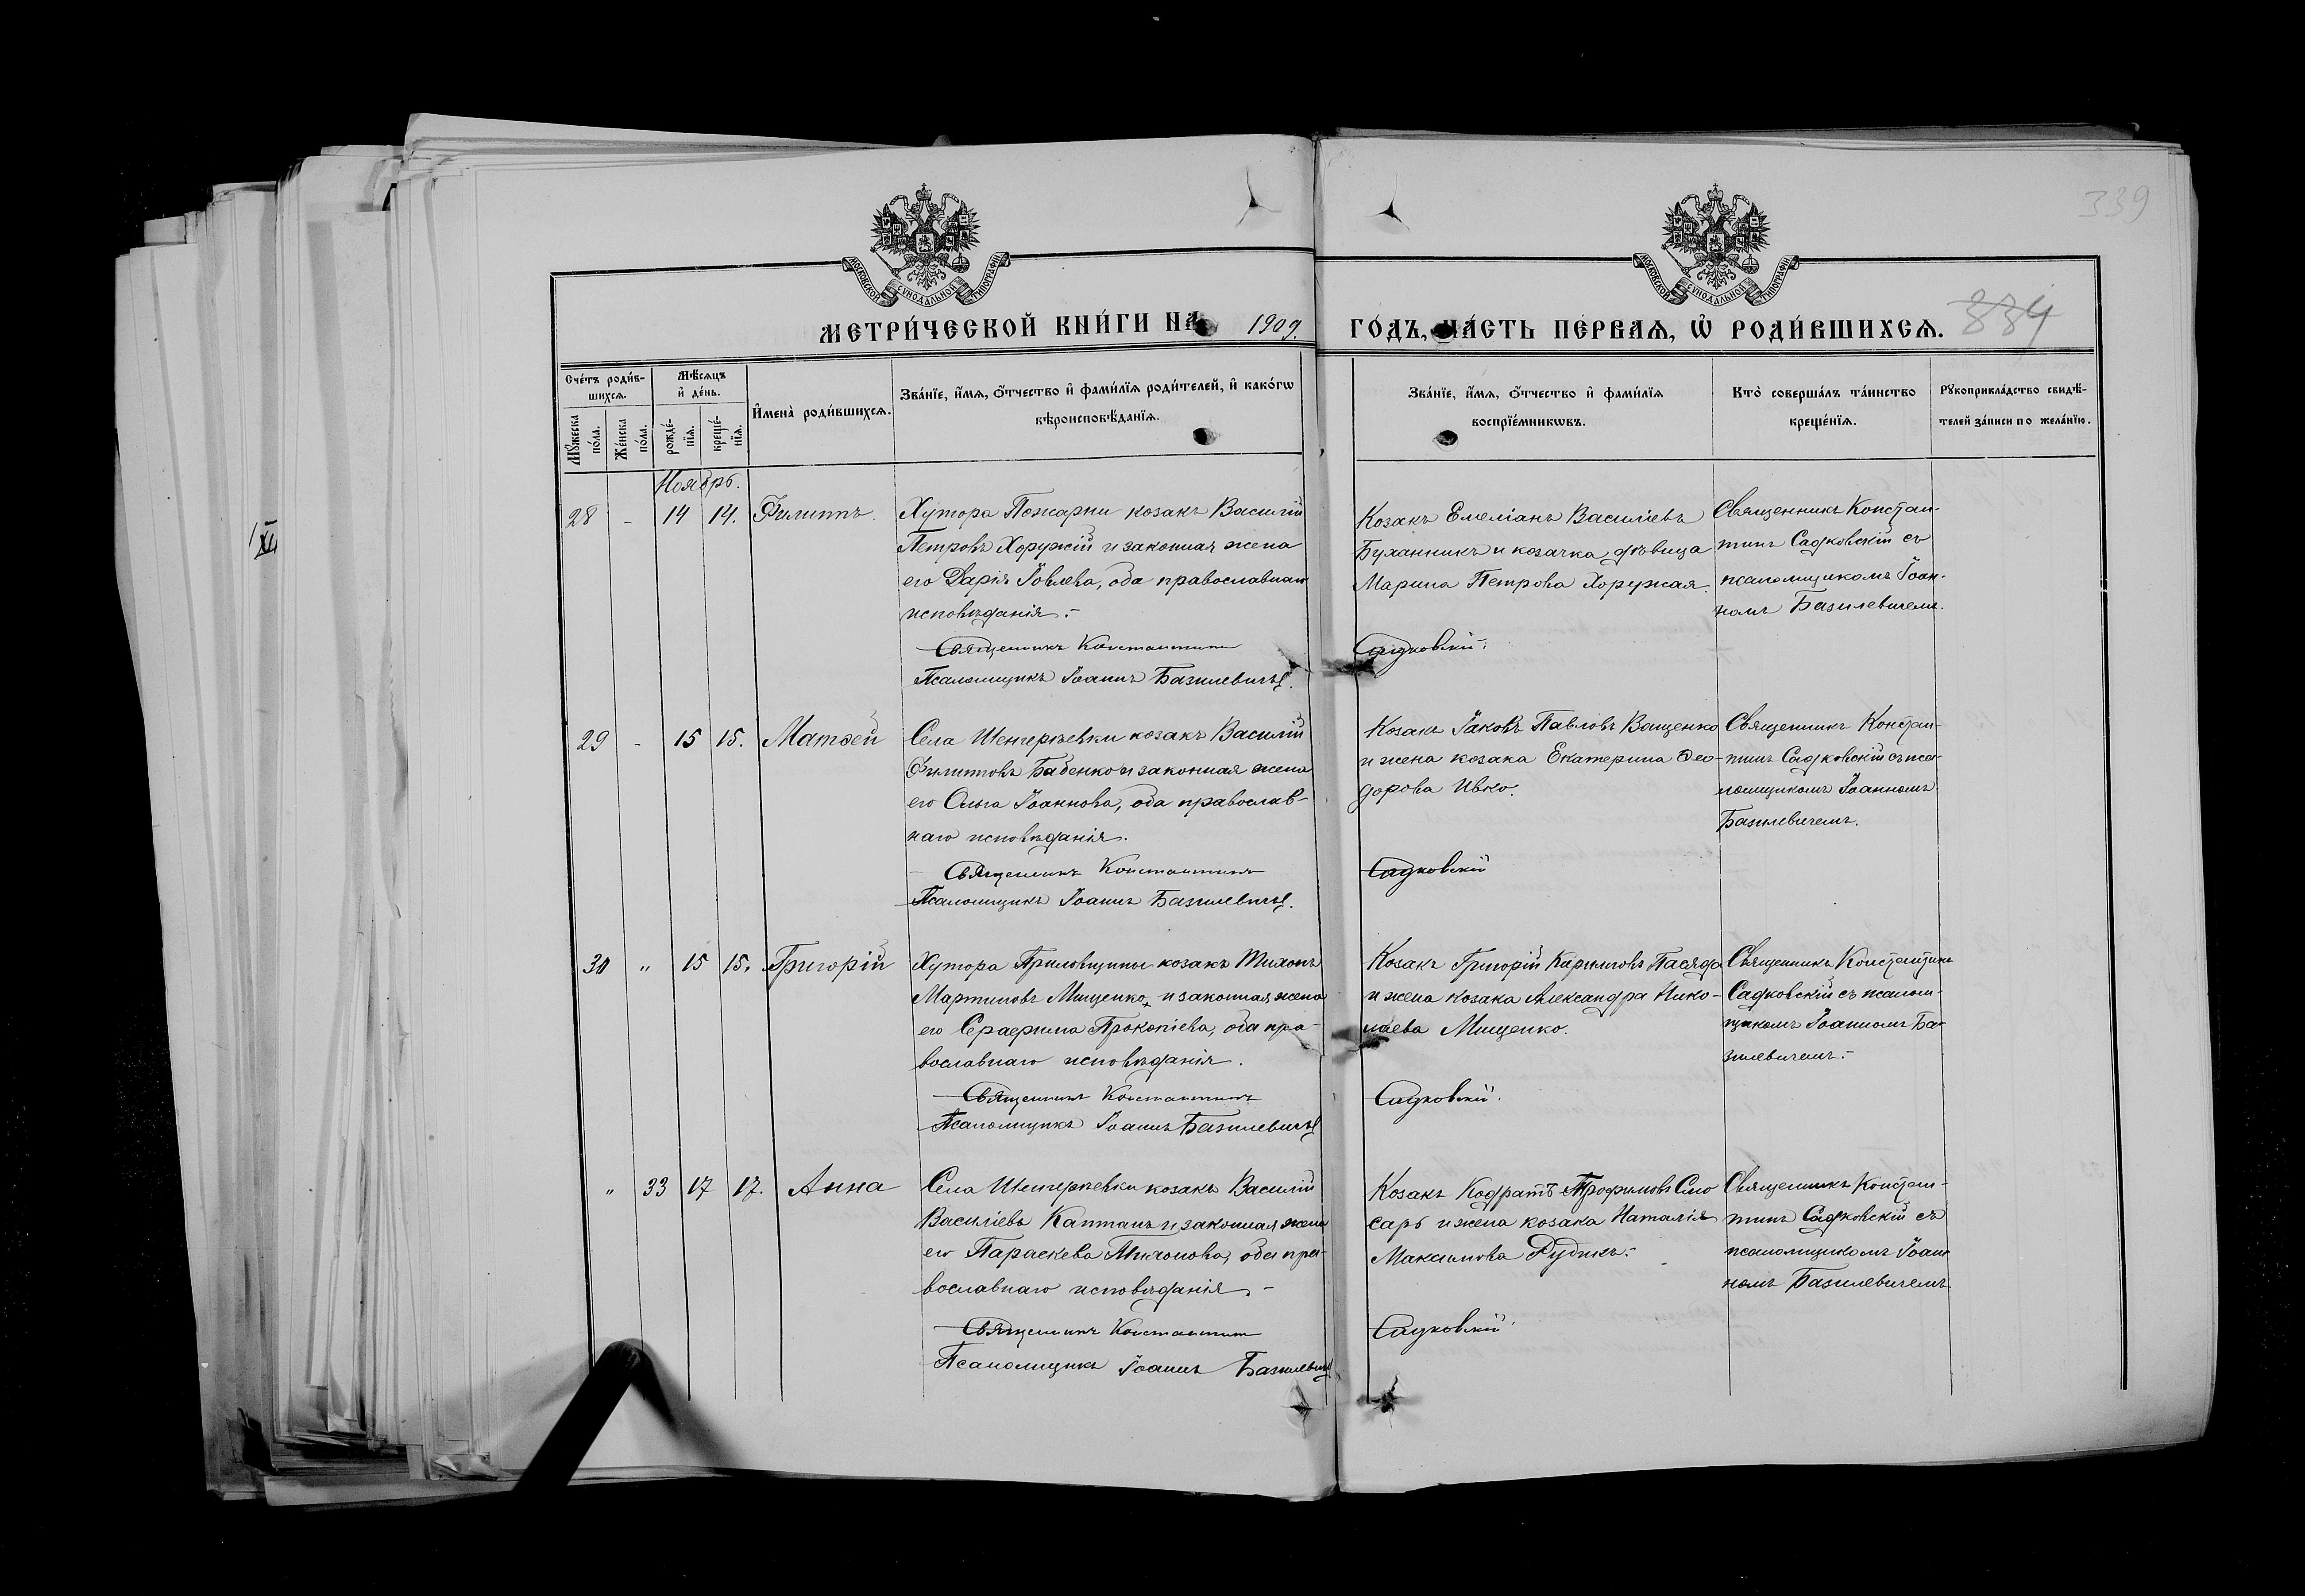 339
МОСКОВСКОЙ СУНОДАЛЬНОЙ ТИПОГРАФІИ
МОСКОВСКОЙ СУНОДАЛЬНОЙ ТИПОГРАФІИ
МЕТРИ́ЧЕСКОЙ КНИ́ГИ НА 1909. ГО́ДЪ, ЧА́СТЬ ПЕ́РВАѦ, Ѡ҆ РОДИ́ВШИХСѦ. 334
Сче́тъ роди́в-
шихсѧ.
Мꙋ́жеска по́ла.
Же́нска по́ла.
Мѣ́сѧцъ
и҆ де́нь.
рожде́-нїѧ.
креще́-нїѧ.
И҆мена̀ роди́вшихсѧ.
Зва́нїе, и҆́мѧ, ѻ҆́тчество и҆ фами́лїѧ роди́телей, и҆ како́гѡ
вѣроисповѣ́данїѧ.
Зва́нїе, и҆́мѧ, ѻ҆́тчество и҆ фами́лїѧ
воспрїе́мникѡвъ.
Кто̀ соверша́лъ та́инство
креще́нїѧ.
Рꙋкоприкла́дство свидѣ́-
телей за́писи по жела́нїю.
Ноябрь.
28 - 14 14. Филиппъ.
Хутора Пожарни козакъ Василій
Петровъ Хоружій и законная жена
его Дарія Іовлева, оба православнаго
исповѣданія.-
Священникъ Константинъ
Псаломщикъ Іоаннъ Базилевичъ.
Козакъ Емеліанъ Василіевъ
Буханникъ и козачка дѣвица
Марина Петрова Хоружая.
Садковскій.
Священникъ Констан-
тинъ Садковскій съ
псаломщикомъ Іоан-
номъ Базилевичемъ.
29 - 15 15. Матѳей
Села Шенгерѣевки козакъ Василій
Филипповъ Бабенко и законная жена
его Ольга Іоаннова, оба православ-
наго исповѣданія.
Священникъ Константинъ
Псаломщикъ Іоаннъ Базилевичъ.
Козакъ Іаковъ Павловъ Ващенко
и жена козака Екатерина Ѳео-
дорова Ивко.
Садковскій
Священникъ Констан-
тинъ Садковскій съ пса-
ломщикомъ Іоанномъ
Базилевичемъ.
30 " 15 15. Григорій
Хутора Приловщины козакъ Тихонъ
Мартиновъ Мищенко, и законная жена
его Серафима Прокопіева, оба пра-
вославнаго исповѣданія.
Священникъ Константинъ
Псаломщикъ Іоаннъ Базилевичъ
Козакъ Григорій Карповъ Пасяда
и жена козака Александра Нико-
лаева Мищенко.
Садковскій.
Священникъ Константинъ
Садковскій съ псалом-
щикомъ Іоанномъ Ба-
зилевичемъ.-
" 33 17 17. Анна
Села Шенгерѣевки козакъ Василій
Василіевъ Каптанъ и законная жена
его Параскева Тихонова, оба пра-
вославнаго исповѣданія. -
Священникъ Константинъ
Псаломщикъ Іоаннъ Базилевичъ
Козакъ Кодратъ Трофимовъ Слю
сарь и жена козака Наталія
Максимова Рудикъ.-
Садковскій.
Священникъ Констан-
тинъ Садковскій съ
псаломщикомъ Іоан
номъ Базилевичемъ